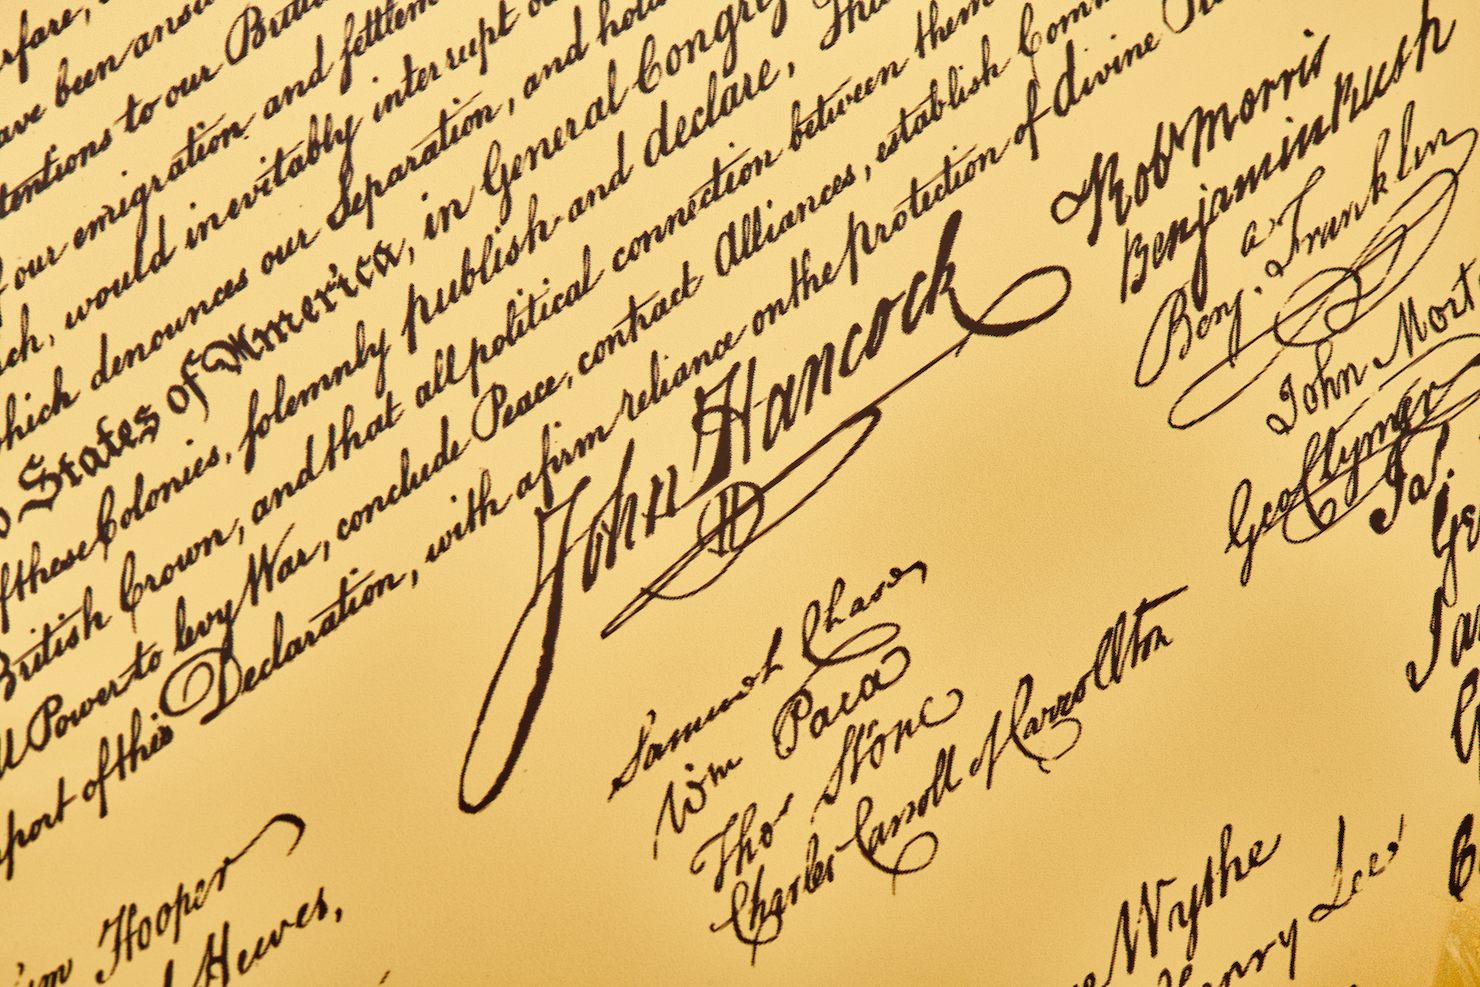 rfare,
ave been answ
tentions to our Britis
f our emigration and settlem
ch, would inevitably interrupt ou
which denounces our Separation, and hold
States of America, in General Congre
f these Colonies, solemnly publish and declare, That
British Crown, and that all political connection between them
ll Power to levy War, conclude Peace, contract Alliances, establish Comm
port of this Declaration, with a firm reliance on the protection of divine
John Hancock
Robt Morris
Benjamin Rush
Benj. Franklin
John Mort
Geo Clymer
Jas.
Ge
Ja
Samuel Chase
Wm Paca
Thos Stone
Charles Carroll of Carrollton
m Hooper
Hewes,
Wythe
enry Lee